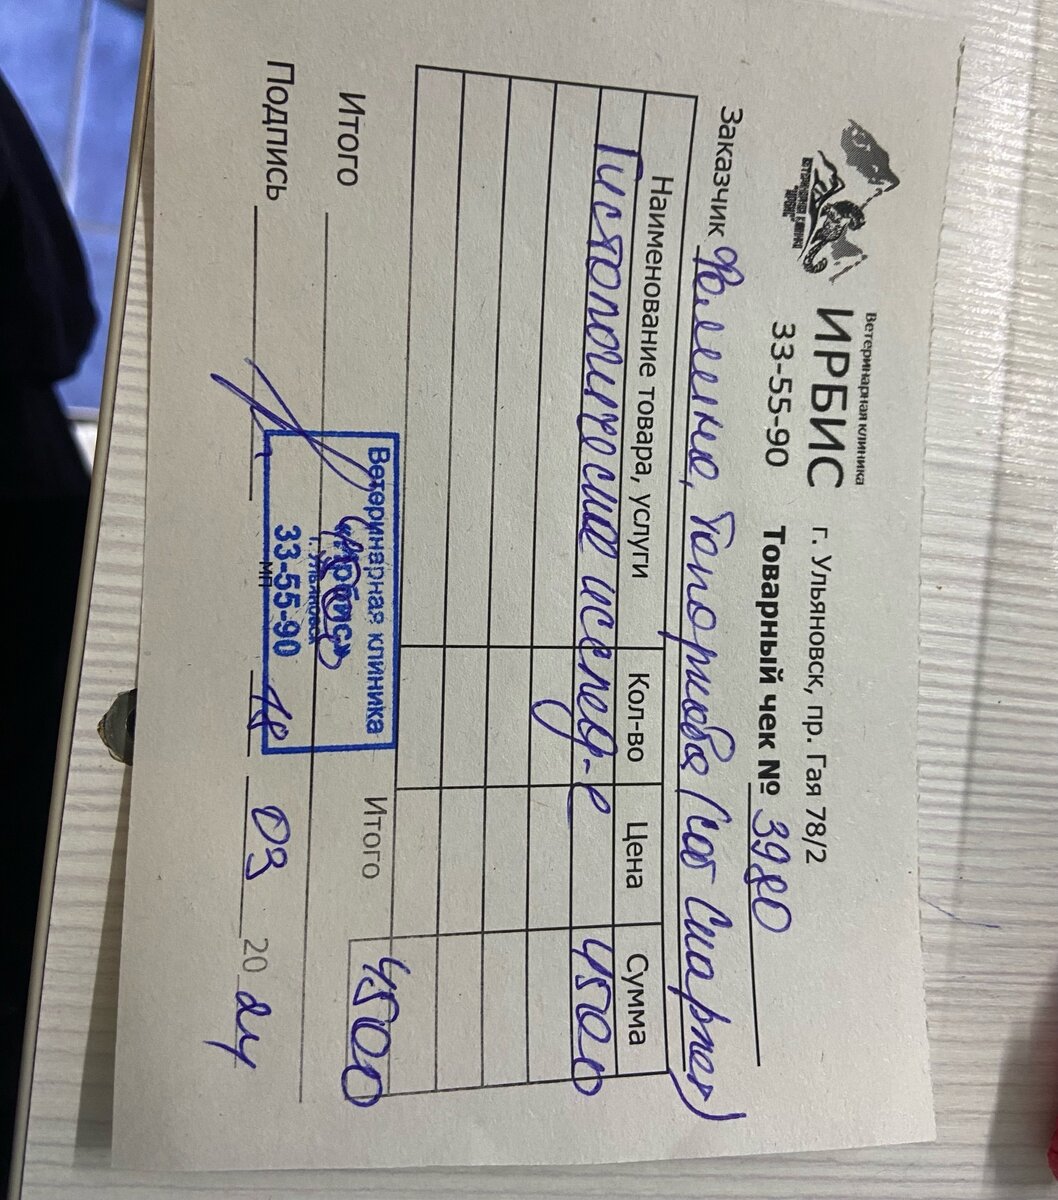 Ветеринарная клиника
ИРБИС г. Ульяновск, пр. Гая 78/2
33-55-90 Товарный чек № 3980
Заказчик Топоркова (соб Скарлет)
Наименование товара, услуги Кол-во Цена Сумма
Гистологическое исслед-е 4500
Итого 4500
Итого
Ветеринарная клиника
«Ирбис»
г. Ульяновск
33-55-90
Подпись МП 18 03 20 24